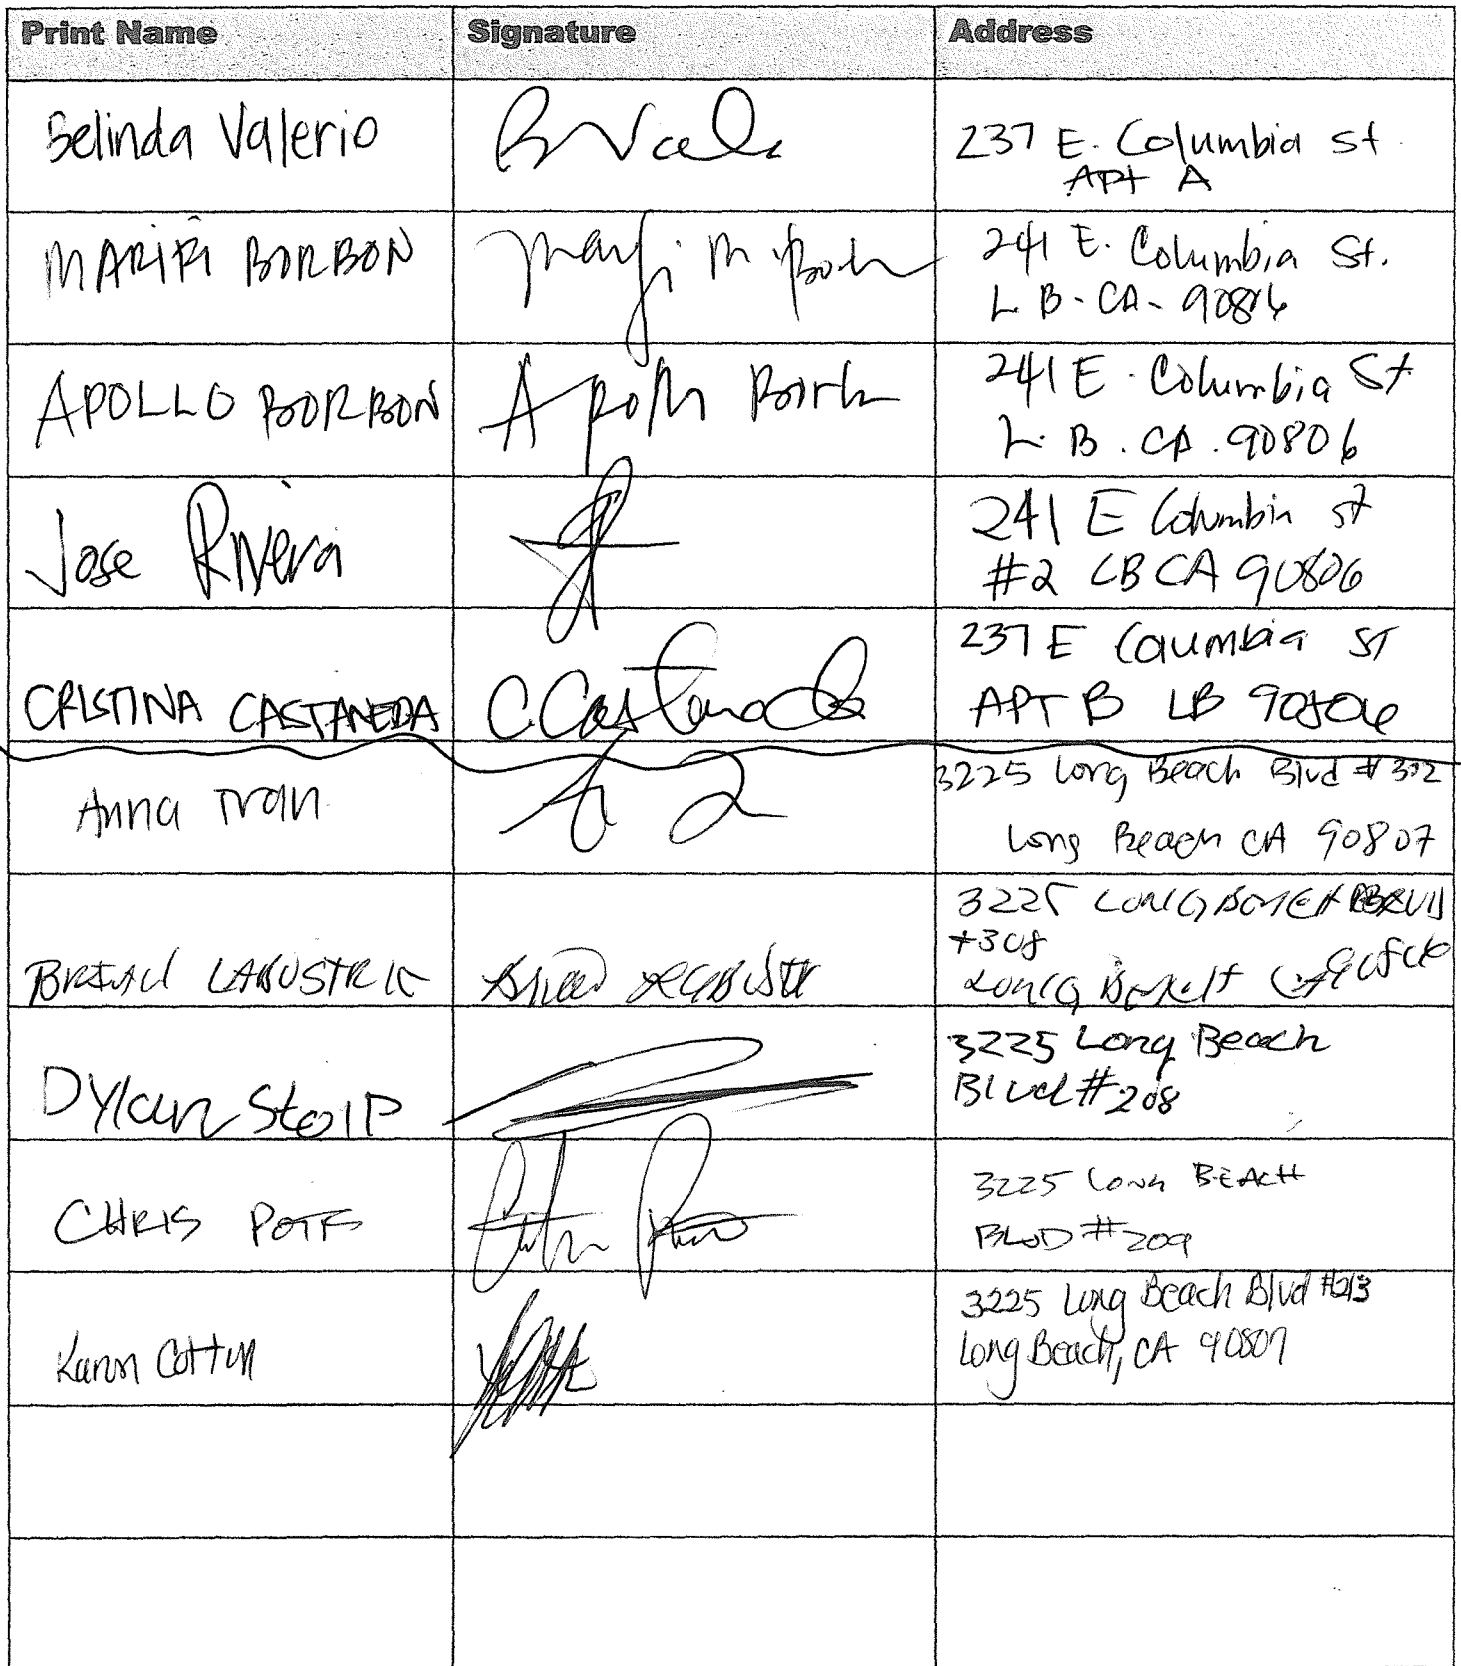 Print Name Signature Address
Belinda Valerio
237 E. Columbia St.
APt A
MARIFI BORBON
241 E. Columbia St.
L B - CA - 90806
APOLLO BORBON
241 E. Columbia St
L. B. CA. 90806
Jose Rivera
241 E Columbia st
#2 LB CA 90806
CRISTINA CASTANEDA C Castaneda
237 E Coumbia ST
APT B LB 90806
Anna Tran
3225 Long Beach Blvd #302
Long Beach CA 90807
3225 LONG BEACH
#308
LONG BEACH CA
DYlan Stolp
3225 Long Beach
Blvd #208
CHRIS
3225 Long BEACH
BLVD #209
Karen Cotton
3225 Long Beach Blvd #213
Long Beach, CA 90807